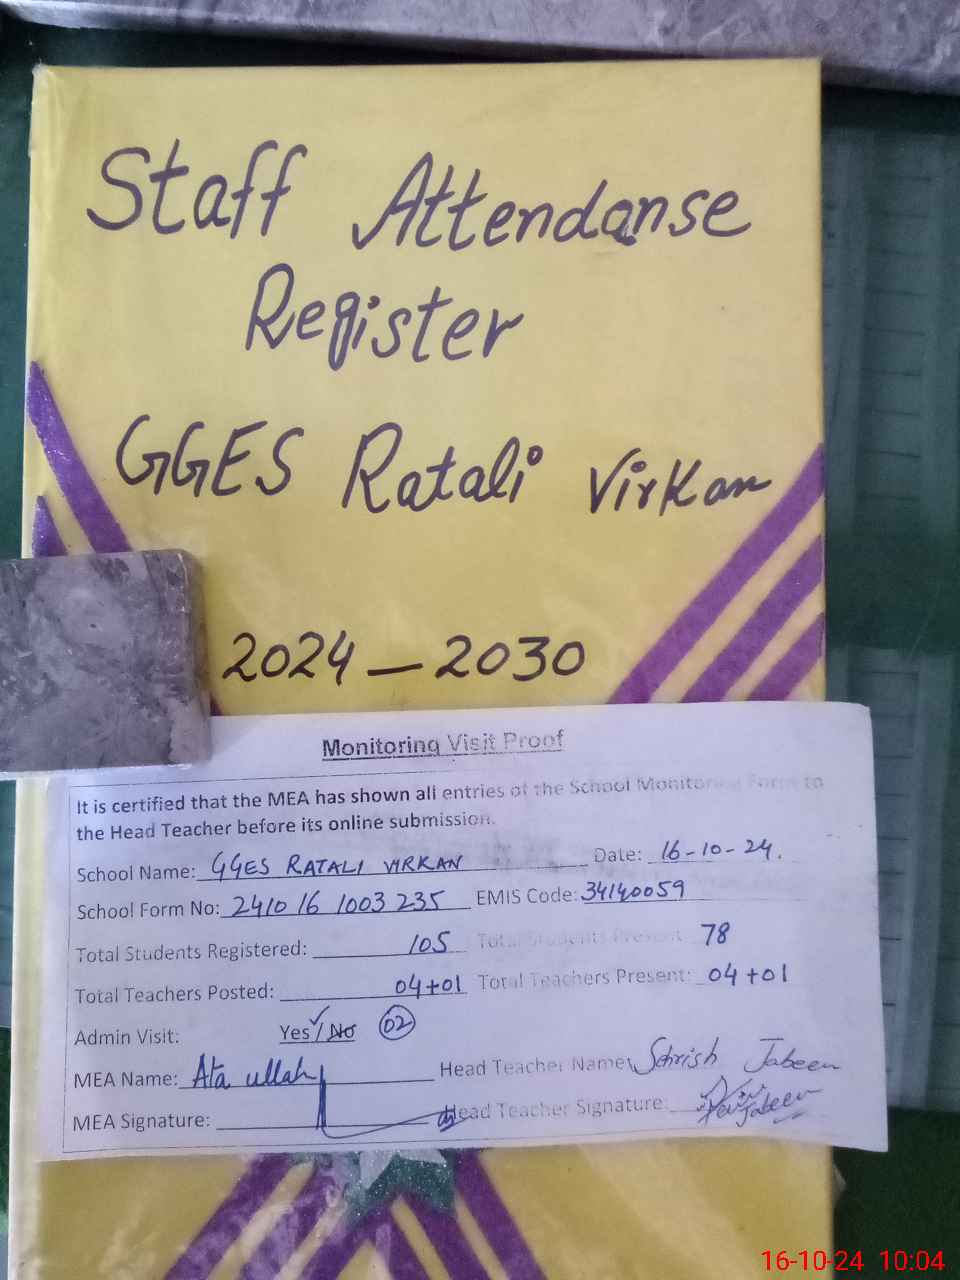 Staff Attendanse
Register
GGES Ratali Virkan
2024 – 2030
Monitoring Visit Proof
It is certified that the MEA has shown all entries of the School Monitoring Form to
the Head Teacher before its online submission.
School Name: GGES RATALI VIRKAN Date: 16-10-24.
School Form No: 2410 16 1003 235 EMIS Code: 34140059
Total Students Registered: 105 Total Students Present: 78
Total Teachers Posted: 04+01 Total Teachers Present: 04+01
Admin Visit: Yes✓/No 02
MEA Name: Ata ullah Head Teacher Name: Sehrish Jabeen
MEA Signature: Head Teacher Signature: Jabeen
16-10-24 10:04